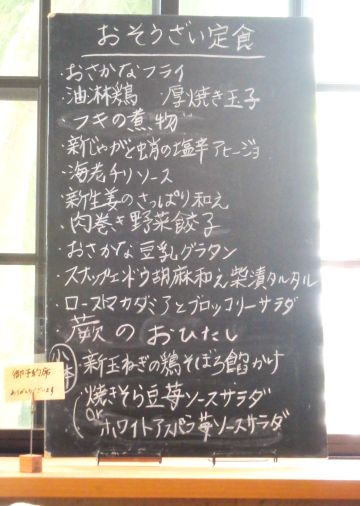 おそうざい定食
・おさかなフライ
・油淋鶏　厚焼き玉子
・フキの煮物
・新じゃがと蛸の塩辛アヒージョ
・海老チリソース
・新生姜のさっぱり和え
・肉巻き野菜餃子
・おさかな豆乳グラタン
・スナップエンドウ胡麻和え柴漬タルタル
・ローストマカダミアとブロッコリーサラダ
・蕨のおひたし
小鉢
・新玉ねぎの鶏そぼろ餡かけ
・焼きそら豆苺ソースサラダ
or
ホワイトアスパラ苺ソースサラダ
御予約席
ありがとうございます